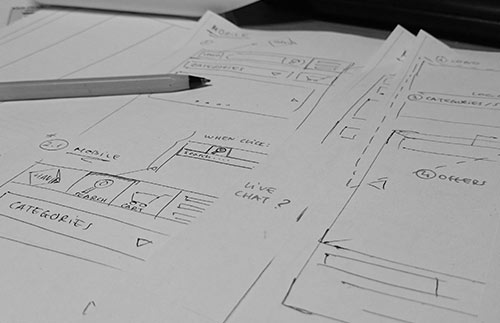 MOBILE
CATEGORIES
2.1 MOBILE
WHEN CLICK:
SEARCH
SEARCH
CART
CATEGORIES
LIVE
CHAT?
1 LOGO
LOGO
3 CATEGORIES
4 OFFERS